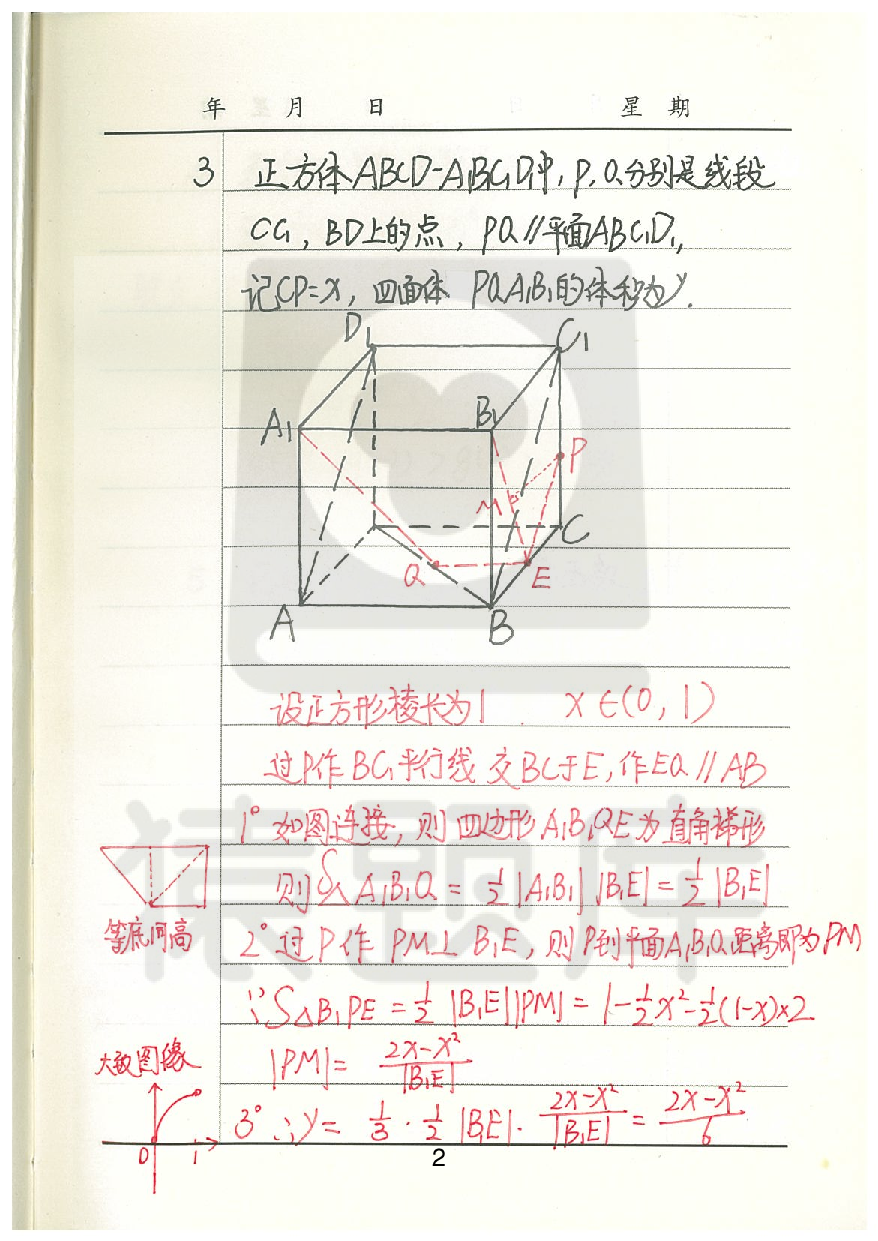 年 月 日 星 期
3 正方体ABCD-A₁B₁C₁D₁中, P, Q分别是线段
CC₁, BD上的点, PQ∥平面ABC₁D₁,
记CP=x, 四面体 PQA₁B₁的体积为y.
D₁ C₁
A₁ B₁ P
M
C
Q E
A B
设正方形棱长为1. x∈(0,1)
过P作BC₁平行线 交BC于E, 作EQ∥AB
1° 如图连接, 则 四边形A₁B₁QE为直角梯形
则S△A₁B₁Q = ½|A₁B₁|·|B₁E| = ½|B₁E|
等底同高
2° 过P作 PM⊥B₁E, 则P到平面A₁B₁Q距离即为PM
∵S△B₁PE = ½|B₁E||PM| = 1-½x²-½(1-x)×2
|PM| = (2x-x²)/|B₁E|
大致图像
3° ∴y = ⅓·½|B₁E|·(2x-x²)/|B₁E| = (2x-x²)/6
0 1
2
猿题库